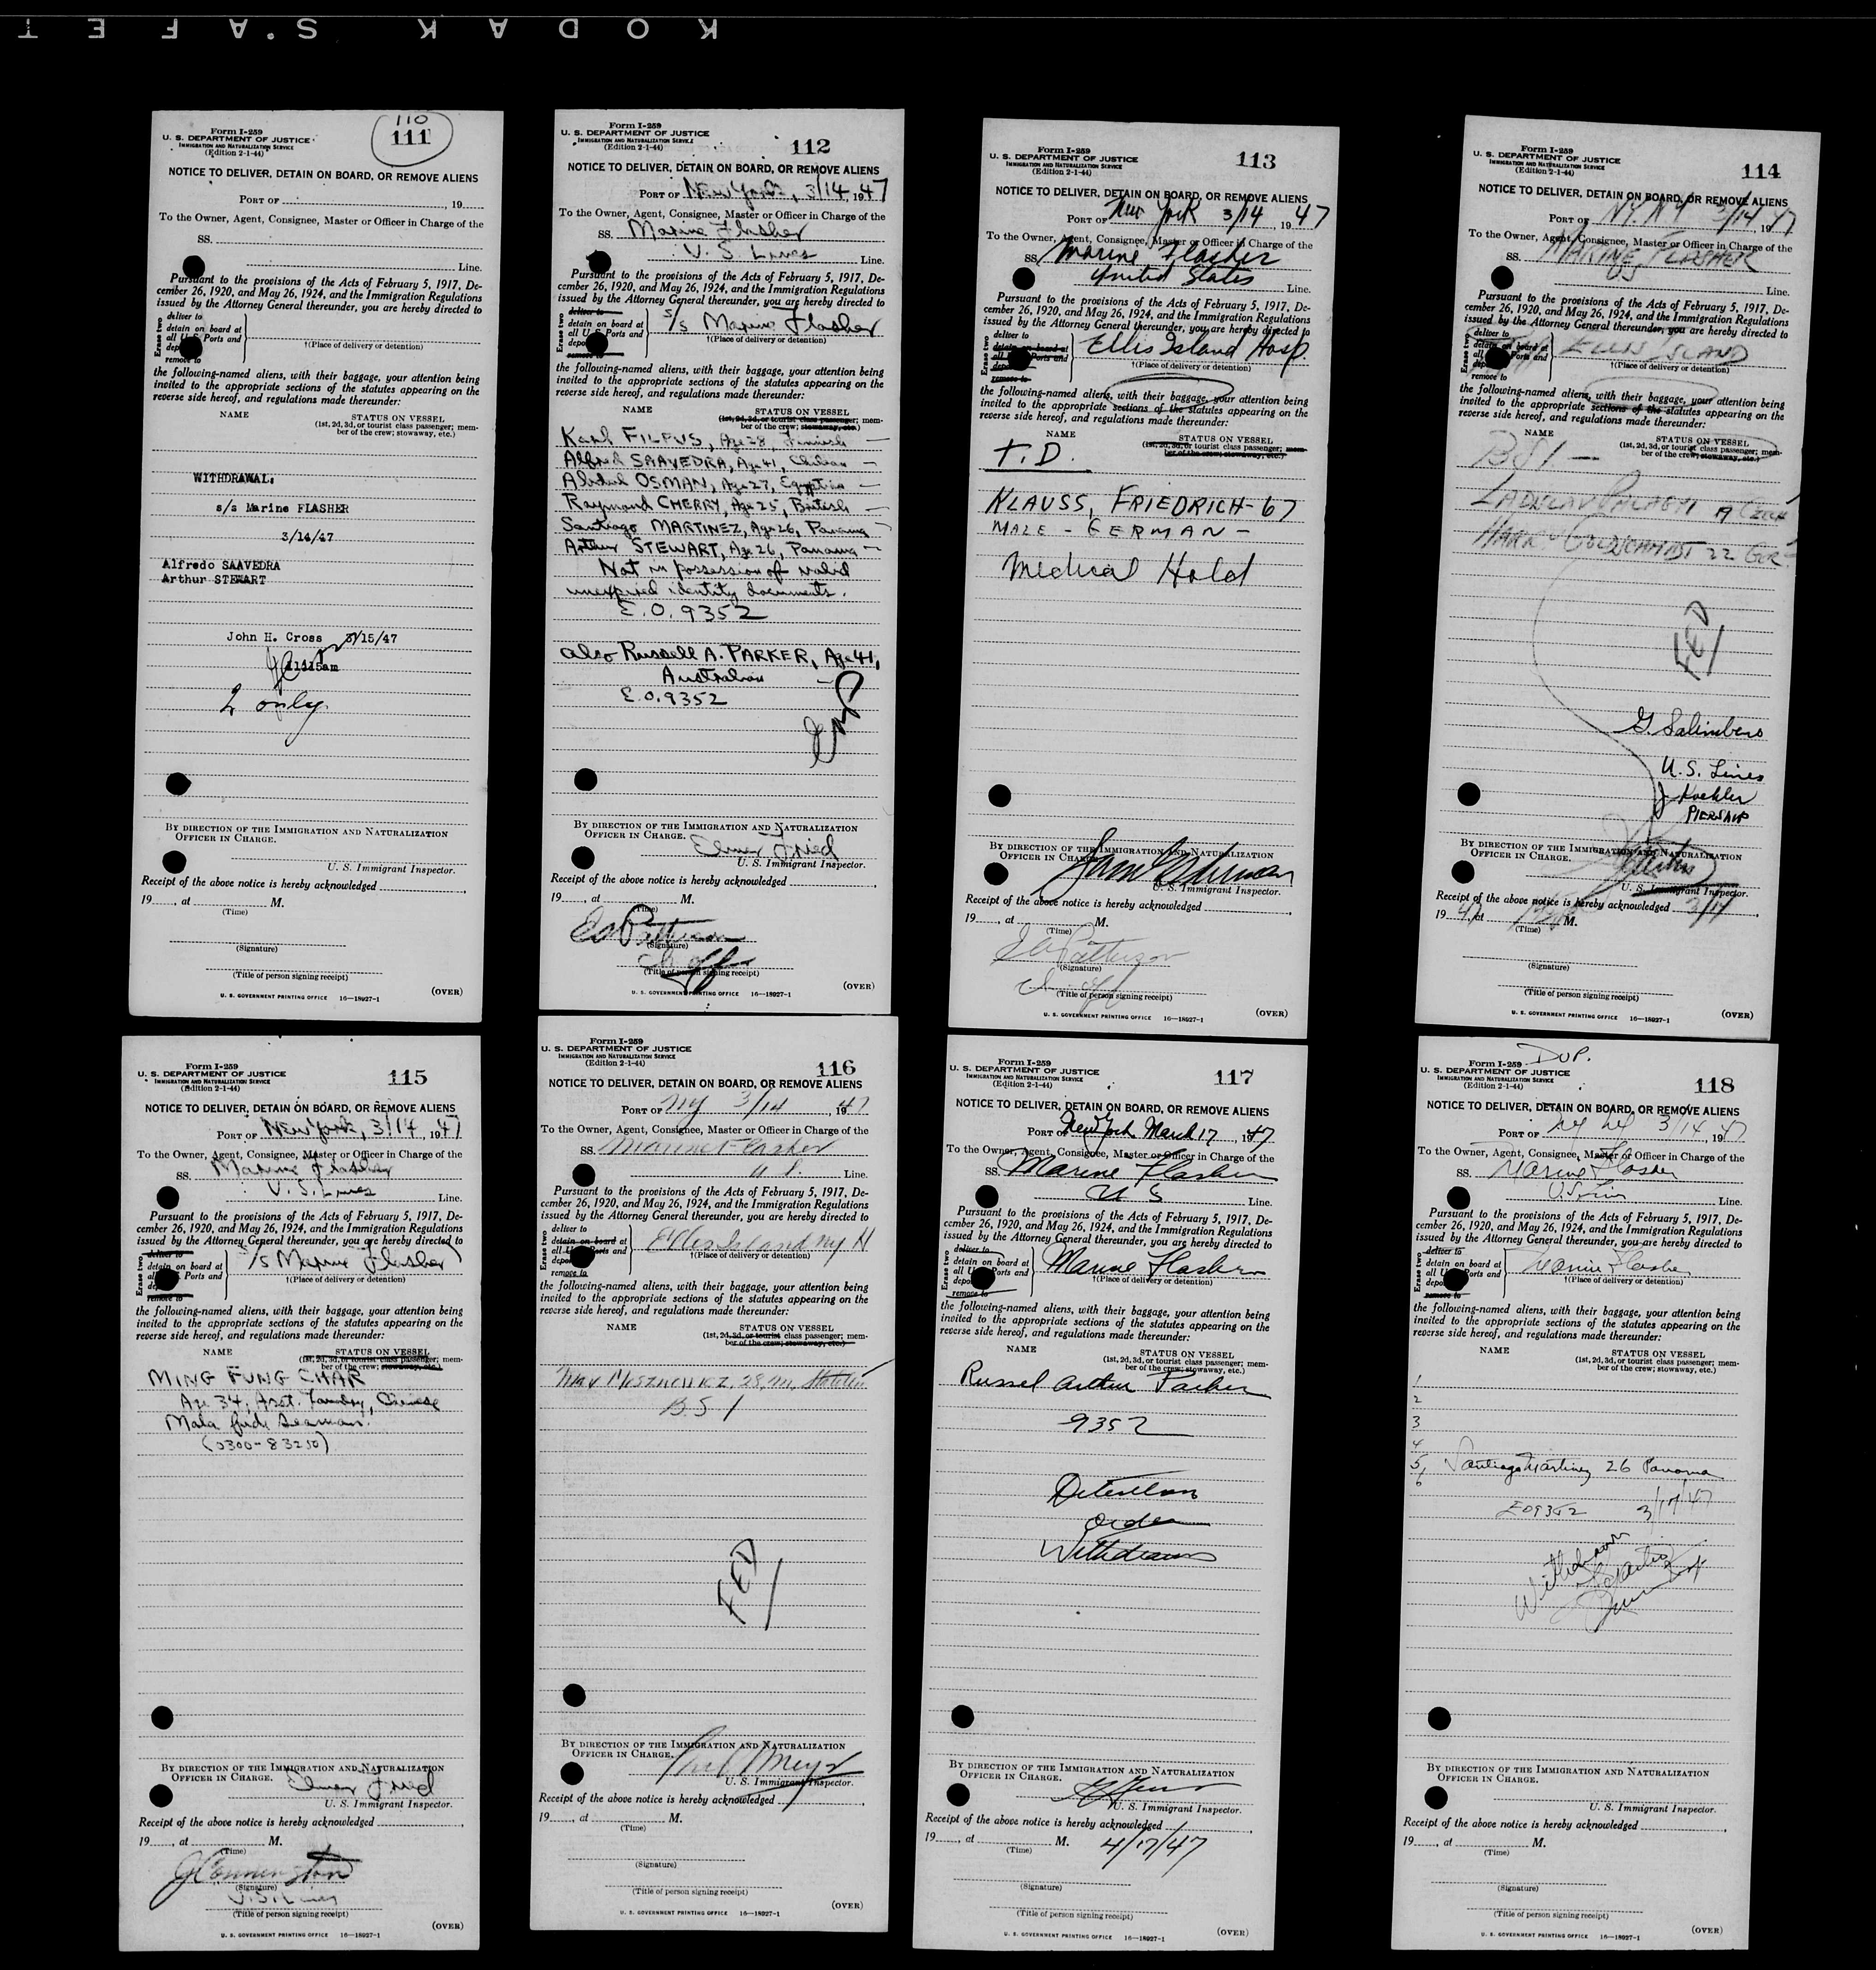 KODAK SAFET
110
111
Form I-259
U. S. DEPARTMENT OF JUSTICE
IMMIGRATION AND NATURALIZATION SERVICE
(Edition 2-1-44)
NOTICE TO DELIVER, DETAIN ON BOARD, OR REMOVE ALIENS
PORT OF , 19
To the Owner, Agent, Consignee, Master or Officer in Charge of the
SS.
Line.
Pursuant to the provisions of the Acts of February 5, 1917, De-
cember 26, 1920, and May 26, 1924, and the Immigration Regulations
issued by the Attorney General thereunder, you are hereby directed to
Erase two
deliver to
detain on board at
all U.S. Ports and
depo
remove to
†(Place of delivery or detention)
the following-named aliens, with their baggage, your attention being
invited to the appropriate sections of the statutes appearing on the
reverse side hereof, and regulations made thereunder:
NAME STATUS ON VESSEL
(1st, 2d, 3d, or tourist class passenger; mem-
ber of the crew; stowaway, etc.)
WITHDRAWAL.
s/s Marine FLASHER
3/14/47
Alfredo SAAVEDRA
Arthur STEWART
John H. Cross 3/15/47
11:15am
2 only
BY DIRECTION OF THE IMMIGRATION AND NATURALIZATION
OFFICER IN CHARGE.
U. S. Immigrant Inspector.
Receipt of the above notice is hereby acknowledged
19 , at M.
(Time)
(Signature)
(Title of person signing receipt)
(OVER)
U. S. GOVERNMENT PRINTING OFFICE 16—18927-1
112
Form I-259
U. S. DEPARTMENT OF JUSTICE
IMMIGRATION AND NATURALIZATION SERVICE
(Edition 2-1-44)
NOTICE TO DELIVER, DETAIN ON BOARD, OR REMOVE ALIENS
PORT OF New York, 3/14, 1947
To the Owner, Agent, Consignee, Master or Officer in Charge of the
SS. Marine Flasher
U. S. Lines Line.
Pursuant to the provisions of the Acts of February 5, 1917, De-
cember 26, 1920, and May 26, 1924, and the Immigration Regulations
issued by the Attorney General thereunder, you are hereby directed to
Erase two
deliver to
detain on board at
all U.S. Ports and
depo
remove to
S/s Marine Flasher
†(Place of delivery or detention)
the following-named aliens, with their baggage, your attention being
invited to the appropriate sections of the statutes appearing on the
reverse side hereof, and regulations made thereunder:
NAME STATUS ON VESSEL
(1st, 2d, 3d, or tourist class passenger; mem-
ber of the crew; stowaway, etc.)
Karl FILPUS, Age 28, Finnish —
Alfred SAAVEDRA, Age 41, Chilean —
Abdul OSMAN, Age 27, Egyptian —
Raymond CHERRY, Age 25, British —
Santiago MARTINEZ, Age 26, Panama —
Arthur STEWART, Age 26, Panama —
Not in possession of valid
unexpired identity documents.
E.O. 9352
also Russell A. PARKER, Age 41,
Australian —
E.O. 9352
BY DIRECTION OF THE IMMIGRATION AND NATURALIZATION
OFFICER IN CHARGE. Elmer Fried
U. S. Immigrant Inspector.
Receipt of the above notice is hereby acknowledged
19 , at M.
(Time)
Patterson
(Signature)
Ch off
(Title of person signing receipt)
(OVER)
U. S. GOVERNMENT PRINTING OFFICE 16—18927-1
113
Form I-259
U. S. DEPARTMENT OF JUSTICE
IMMIGRATION AND NATURALIZATION SERVICE
(Edition 2-1-44)
NOTICE TO DELIVER, DETAIN ON BOARD, OR REMOVE ALIENS
PORT OF New York 3/14, 1947
To the Owner, Agent, Consignee, Master or Officer in Charge of the
SS Marine Flasher
United States Line.
Pursuant to the provisions of the Acts of February 5, 1917, De-
cember 26, 1920, and May 26, 1924, and the Immigration Regulations
issued by the Attorney General thereunder, you are hereby directed to
Erase two
deliver to
detain on board at
all Ports and
depo
remove to
Ellis Island Hosp.
†(Place of delivery or detention)
the following-named aliens, with their baggage, your attention being
invited to the appropriate sections of the statutes appearing on the
reverse side hereof, and regulations made thereunder:
NAME STATUS ON VESSEL
(1st, 2d, 3d, or tourist class passenger; mem-
ber of the crew; stowaway, etc.)
T.D.
KLAUSS, FRIEDRICH - 67
MALE - GERMAN -
Medical Hold
BY DIRECTION OF THE IMMIGRATION AND NATURALIZATION
OFFICER IN CHARGE.
U. S. Immigrant Inspector.
Receipt of the above notice is hereby acknowledged
19 , at M.
(Time)
Patterson
(Signature)
Ch off
(Title of person signing receipt)
(OVER)
U. S. GOVERNMENT PRINTING OFFICE 16—18927-1
114
Form I-259
U. S. DEPARTMENT OF JUSTICE
IMMIGRATION AND NATURALIZATION SERVICE
(Edition 2-1-44)
NOTICE TO DELIVER, DETAIN ON BOARD, OR REMOVE ALIENS
PORT OF NY NY 3/14, 1947
To the Owner, Agent, Consignee, Master or Officer in Charge of the
SS. MARINE FLASHER
US Line.
Pursuant to the provisions of the Acts of February 5, 1917, De-
cember 26, 1920, and May 26, 1924, and the Immigration Regulations
issued by the Attorney General thereunder, you are hereby directed to
Erase two
deliver to
detain on board at
all Ports and
depo
remove to
ELLIS ISLAND
†(Place of delivery or detention)
the following-named aliens, with their baggage, your attention being
invited to the appropriate sections of the statutes appearing on the
reverse side hereof, and regulations made thereunder:
NAME STATUS ON VESSEL
(1st, 2d, 3d, or tourist class passenger; mem-
ber of the crew; stowaway, etc.)
BSI —
LADISLAV 19 Czech
GOLDSCHMIDT 22 Ger
FED
G. Salimbero
U. S. Lines
J Koehler
BY DIRECTION OF THE IMMIGRATION AND NATURALIZATION
OFFICER IN CHARGE.
U. S. Immigrant Inspector.
Receipt of the above notice is hereby acknowledged 3/14
1947, at M.
(Time)
(Signature)
(Title of person signing receipt)
(OVER)
U. S. GOVERNMENT PRINTING OFFICE 16—18927-1
115
Form I-259
U. S. DEPARTMENT OF JUSTICE
IMMIGRATION AND NATURALIZATION SERVICE
(Edition 2-1-44)
NOTICE TO DELIVER, DETAIN ON BOARD, OR REMOVE ALIENS
PORT OF New York, 3/14, 1947
To the Owner, Agent, Consignee, Master or Officer in Charge of the
SS. Marine Flasher
U. S. Lines Line.
Pursuant to the provisions of the Acts of February 5, 1917, De-
cember 26, 1920, and May 26, 1924, and the Immigration Regulations
issued by the Attorney General thereunder, you are hereby directed to
Erase two
deliver to
detain on board at
all Ports and
depo
remove to
S/s Marine Flasher
†(Place of delivery or detention)
the following-named aliens, with their baggage, your attention being
invited to the appropriate sections of the statutes appearing on the
reverse side hereof, and regulations made thereunder:
NAME STATUS ON VESSEL
(1st, 2d, 3d, or tourist class passenger; mem-
ber of the crew; stowaway, etc.)
MING FUNG CHAR
Age 34, Asst. Laundry, Chinese
Mala fide seaman.
(0300-83250)
BY DIRECTION OF THE IMMIGRATION AND NATURALIZATION
OFFICER IN CHARGE. Elmer Fried
U. S. Immigrant Inspector.
Receipt of the above notice is hereby acknowledged
19 , at M.
(Time)
(Signature)
U.S. Lines
(Title of person signing receipt)
(OVER)
U. S. GOVERNMENT PRINTING OFFICE 16—18927-1
116
Form I-259
U. S. DEPARTMENT OF JUSTICE
IMMIGRATION AND NATURALIZATION SERVICE
(Edition 2-1-44)
NOTICE TO DELIVER, DETAIN ON BOARD, OR REMOVE ALIENS
PORT OF NY 3/14, 1947
To the Owner, Agent, Consignee, Master or Officer in Charge of the
SS. Marine Flasher
U. S. Line.
Pursuant to the provisions of the Acts of February 5, 1917, De-
cember 26, 1920, and May 26, 1924, and the Immigration Regulations
issued by the Attorney General thereunder, you are hereby directed to
Erase two
deliver to
detain on board at
all U.S. Ports and
depo
remove to
Ellis Island NY H
†(Place of delivery or detention)
the following-named aliens, with their baggage, your attention being
invited to the appropriate sections of the statutes appearing on the
reverse side hereof, and regulations made thereunder:
NAME STATUS ON VESSEL
(1st, 2d, 3d, or tourist class passenger; mem-
ber of the crew; stowaway, etc.)
Max 28, m,
B.S.I
FED
BY DIRECTION OF THE IMMIGRATION AND NATURALIZATION
OFFICER IN CHARGE.
U. S. Immigrant Inspector.
Receipt of the above notice is hereby acknowledged
19 , at M.
(Time)
(Signature)
(Title of person signing receipt)
(OVER)
U. S. GOVERNMENT PRINTING OFFICE 16—18927-1
117
Form I-259
U. S. DEPARTMENT OF JUSTICE
IMMIGRATION AND NATURALIZATION SERVICE
(Edition 2-1-44)
NOTICE TO DELIVER, DETAIN ON BOARD, OR REMOVE ALIENS
PORT OF New York March 17, 1947
To the Owner, Agent, Consignee, Master or Officer in Charge of the
SS. Marine Flasher
U S Line.
Pursuant to the provisions of the Acts of February 5, 1917, De-
cember 26, 1920, and May 26, 1924, and the Immigration Regulations
issued by the Attorney General thereunder, you are hereby directed to
Erase two
deliver to
detain on board at
all U.S. Ports and
depo
remove to
Marine Flasher
†(Place of delivery or detention)
the following-named aliens, with their baggage, your attention being
invited to the appropriate sections of the statutes appearing on the
reverse side hereof, and regulations made thereunder:
NAME STATUS ON VESSEL
(1st, 2d, 3d, or tourist class passenger; mem-
ber of the crew; stowaway, etc.)
Russel Arthur Parker
9352
Detention
order
Withdrawn
BY DIRECTION OF THE IMMIGRATION AND NATURALIZATION
OFFICER IN CHARGE.
U. S. Immigrant Inspector.
Receipt of the above notice is hereby acknowledged
19 , at M. 4/17/47
(Time)
(Signature)
(Title of person signing receipt)
(OVER)
U. S. GOVERNMENT PRINTING OFFICE 16—18927-1
DUP.
118
Form I-259
U. S. DEPARTMENT OF JUSTICE
IMMIGRATION AND NATURALIZATION SERVICE
(Edition 2-1-44)
NOTICE TO DELIVER, DETAIN ON BOARD, OR REMOVE ALIENS
PORT OF NY NY 3/14, 1947
To the Owner, Agent, Consignee, Master or Officer in Charge of the
SS. Marine Flasher
U.S. Lines Line.
Pursuant to the provisions of the Acts of February 5, 1917, De-
cember 26, 1920, and May 26, 1924, and the Immigration Regulations
issued by the Attorney General thereunder, you are hereby directed to
Erase two
deliver to
detain on board at
all U.S. Ports and
depo
remove to
Marine Flasher
†(Place of delivery or detention)
the following-named aliens, with their baggage, your attention being
invited to the appropriate sections of the statutes appearing on the
reverse side hereof, and regulations made thereunder:
NAME STATUS ON VESSEL
(1st, 2d, 3d, or tourist class passenger; mem-
ber of the crew; stowaway, etc.)
1
2
3
4
5 Santiago Martinez 26 Panama
6
EO9352 3/17/47
Withdrawn
BY DIRECTION OF THE IMMIGRATION AND NATURALIZATION
OFFICER IN CHARGE.
U. S. Immigrant Inspector.
Receipt of the above notice is hereby acknowledged
19 , at M.
(Time)
(Signature)
(Title of person signing receipt)
(OVER)
U. S. GOVERNMENT PRINTING OFFICE 16—18927-1